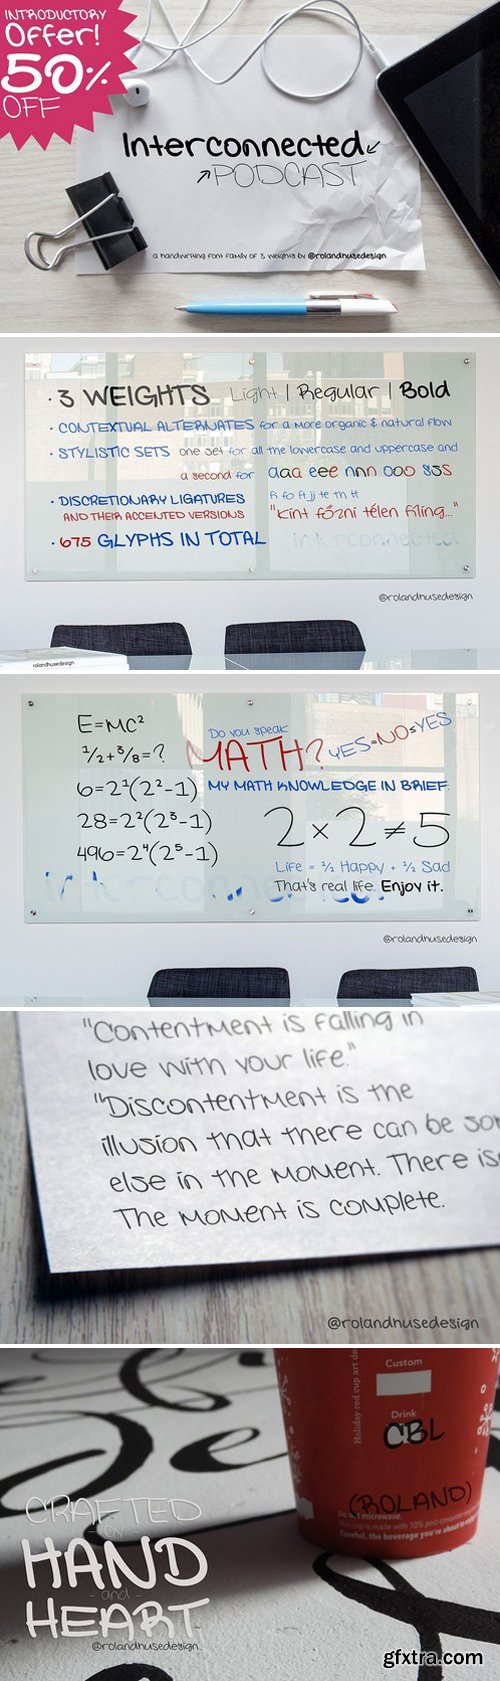 INTRODUCTORY
Offer!
50%
OFF
Interconnected
PODCAST
a handwriting font family of 3 weights by @rolandhusedesign
· 3 WEIGHTS Light | Regular | Bold
· CONTEXTUAL ALTERNATES for a more organic & natural flow
· STYLISTIC SETS one set for all the lowercase and uppercase and
a second for aaa eee nnn ooo sss
· DISCRETIONARY LIGATURES fi fo ft jj te th tt
AND THEIR ACCENTED VERSIONS "Kint főzni télen filing..."
· 675 GLYPHS IN TOTAL interconnected
@rolandhusedesign
rolandhusedesign
E=mc²
½+⅜=?
6=2¹(2²-1)
28=2²(2³-1)
496=2⁴(2⁵-1)
Do you speak
MATH? YES=NO≤YES
MY MATH KNOWLEDGE IN BRIEF:
2×2≠5
Life = ½ Happy + ½ Sad
That's real life. Enjoy it.
@rolandhusedesign
"Contentment is falling in
love with your life."
"Discontentment is the
illusion that there can be som
else in the moment. There is
The moment is complete.
@rolandhusedesign
Holiday red cup art de
Custom
Drink
CBL
(ROLAND)
Do not microwave.
This cup is made with 10% post-consumer
Careful, the beverage you're about to en
CRAFTED
- by -
HAND
- and -
HEART
@rolandhusedesign
gfxtra.com